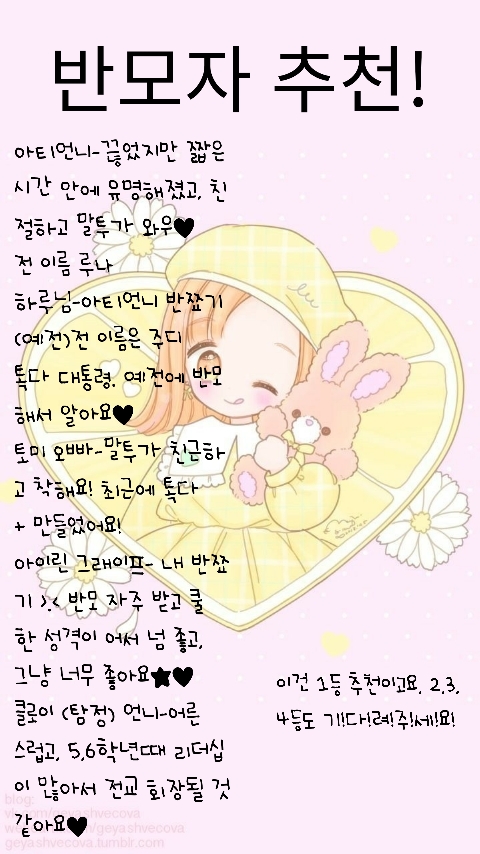 반모자 추천!
아티언니-끊었지만 짧은
시간 안에 유명해졌고, 친
절하고 말투가 와우♥
전 이름 루나
하루님-아티언니 반쪼기
(예전)전 이름은 주디
톡다 대통령. 예전에 반모
해서 알아요♥
토미 오빠-말투가 친근하
고 착해요! 최근에 톡다
+ 만들었어요!
아이린 그래이프- 내 반쪼
기 >.< 반모 자주 받고 쿨
한 성격이 어서 넘 좋고,
그냥 너무 좋아요★♥
클로이 (탐정) 언니-어른
스럽고, 5,6학년때 리더십
이 많아서 전교 회장될 것
같아요♥
이건 1등 추천이고요, 2,3,
4등도 기!다!려!주!세!요!
blog:
geyashvecova
geyashvecova.tumblr.com